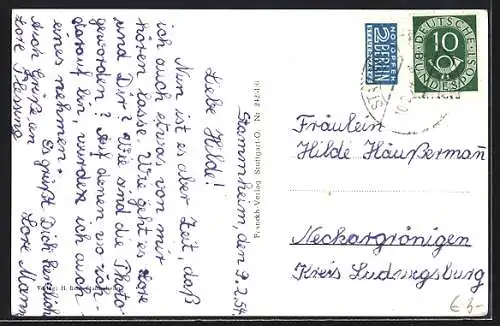 Stammheim, den 9.2.54.
Liebe Hilde!
Nun ist es aber Zeit, daß
ich auch etwas von mir
hören lasse. Wie geht es Lore
und Dir? Wie sind die Photo
geworden? Auf denen wo ich
darauf bin, würde ich auch
eines nehmen.
Es grüßt Dich herzlich
Lore Mann
Auch Grüße an
Lore Messing
Postkh-Verlag Stuttgart-O. Nr.
Verlag: H.
NOTOPFER
2 BERLIN
STEUERMARKE
DEUTSCHE BUNDESPOST
10
Fräulein
Hilde Häußermann
Neckargröningen
Kreis Ludwigsburg
€ 3-